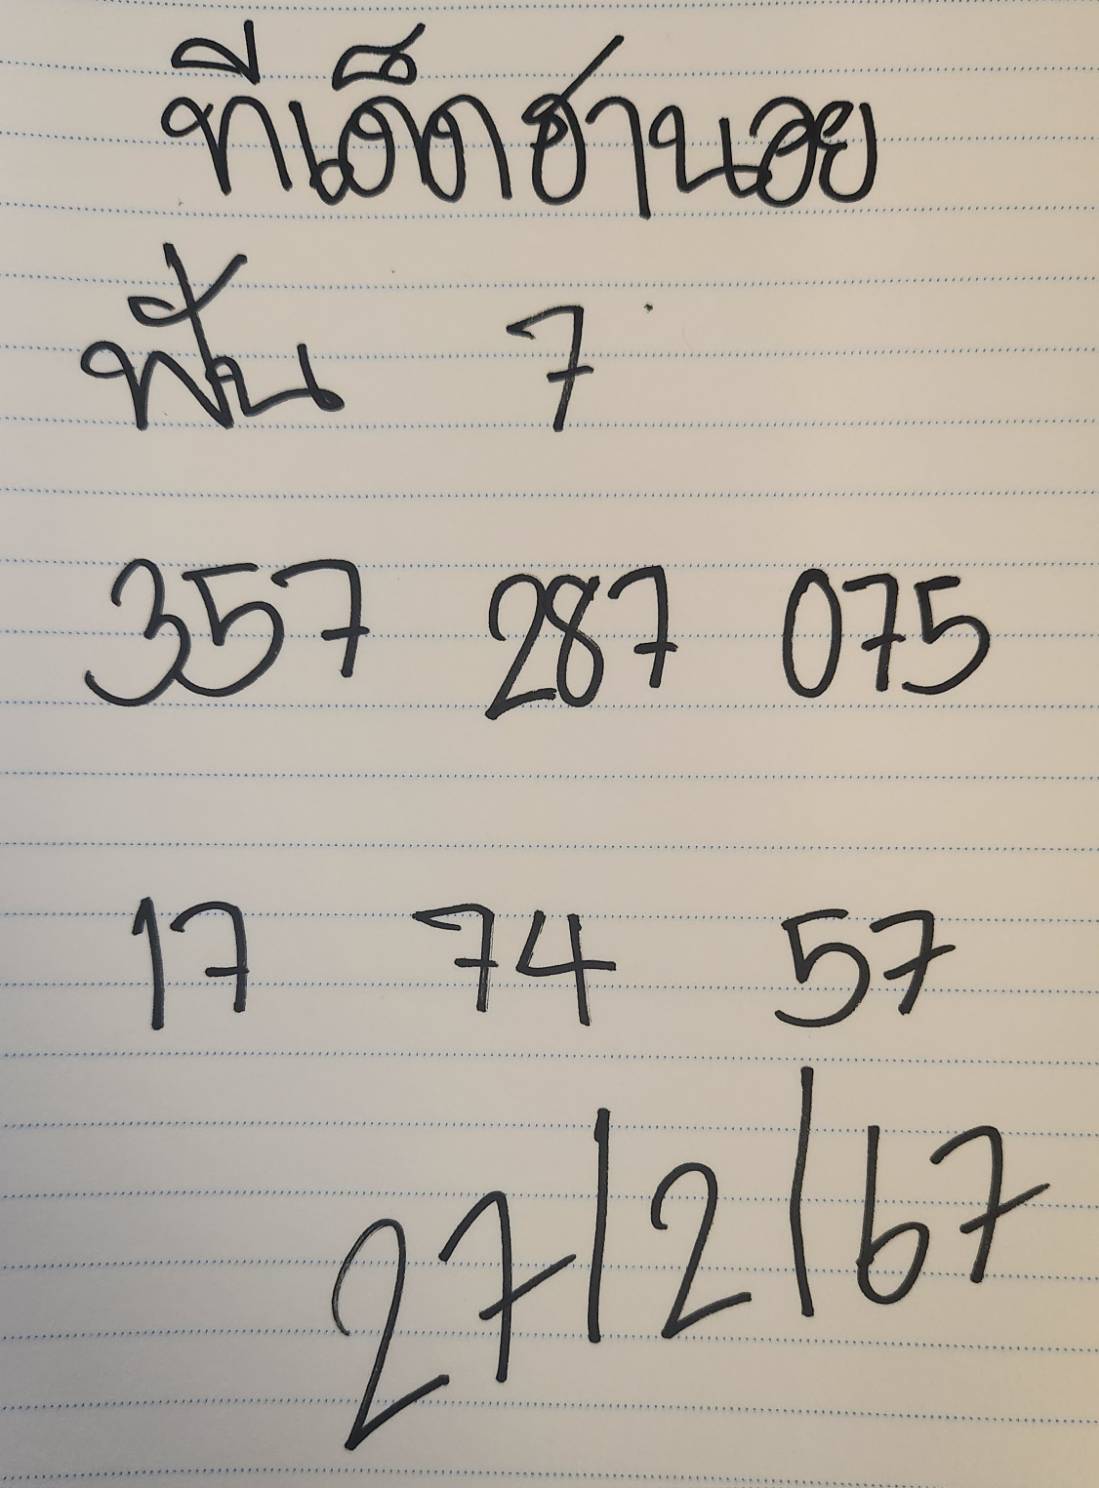 ทีเด็ดฮานอย
ฟัน 7
357 287 075
17 74 57
27/2/67